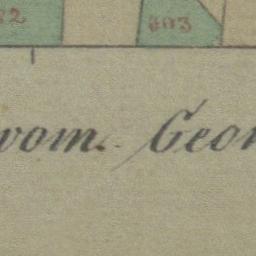 82 603
vom. Geor